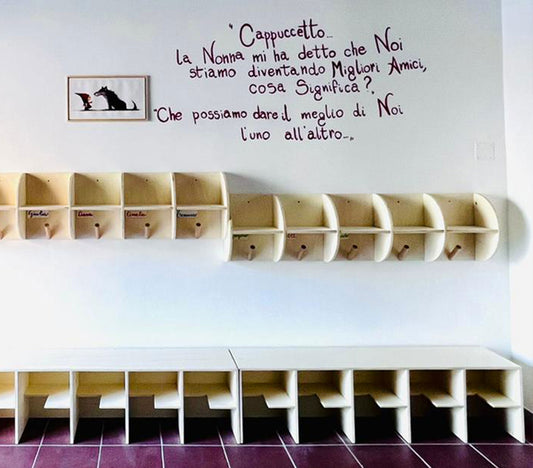 "Cappuccetto...
la Nonna mi ha detto che Noi
stiamo diventando Migliori Amici,
cosa Significa?"
"Che possiamo dare il meglio di Noi
l'uno all'altro..."